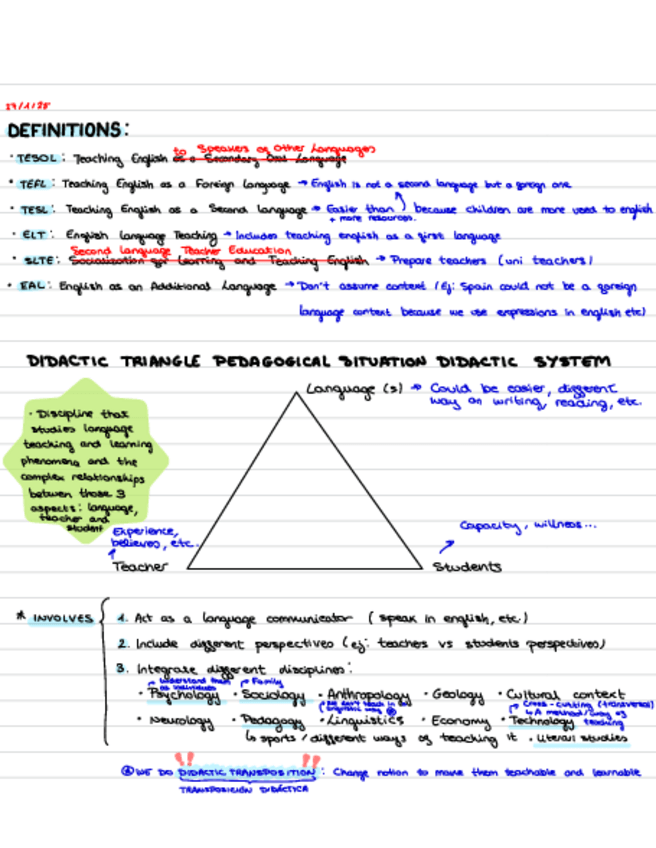 27/1/25
DEFINITIONS:
to Speakers of Other Languages
· TESOL: Teaching English as a Secondary Oral Language
· TEFL: Teaching English as a Foreign Language → English is not a second language but a foreign one
· TESL: Teaching English as a Second Language → Easier than ↑ because children are more used to english
+ more resources.
· ELT: English Language Teaching → Includes teaching english as a first language
Second Language Teacher Education
· SLTE: Socialization for Learning and Teaching English → Prepare teachers (uni teachers)
· EAL: English as an Additional Language → Don't assume context (Ej: Spain could not be a foreign
language context because we use expressions in english etc)
DIDACTIC TRIANGLE PEDAGOGICAL SITUATION DIDACTIC SYSTEM
Language (s) → Could be easier, different
way on writing, reading, etc.
· Discipline that
studies language
teaching and learning
phenomena and the
complex relationships
between those 3
aspects: language,
teacher and
student
Experience,
believes, etc.
Capacity, willness...
Teacher
Students
* INVOLVES
1. Act as a language communicator (speak in english, etc.)
2. Include different perspectives (ej: teachers vs students perspectives)
3. Integrate different disciplines:
understand them
as individuals
Family
· Psychology · Sociology · Anthropology · Geology · Cultural context
Cross-cutting (transversal)
↳ A method/ways of
teaching
· Neurology · Pedagogy · Linguistics · Economy · Technology
↳ sports / different ways of teaching it · Literary studies
WE DO DIDACTIC TRANSPOSITION: Change notion to make them teachable and learnable
TRANSPOSICIÓN DIDÁCTICA